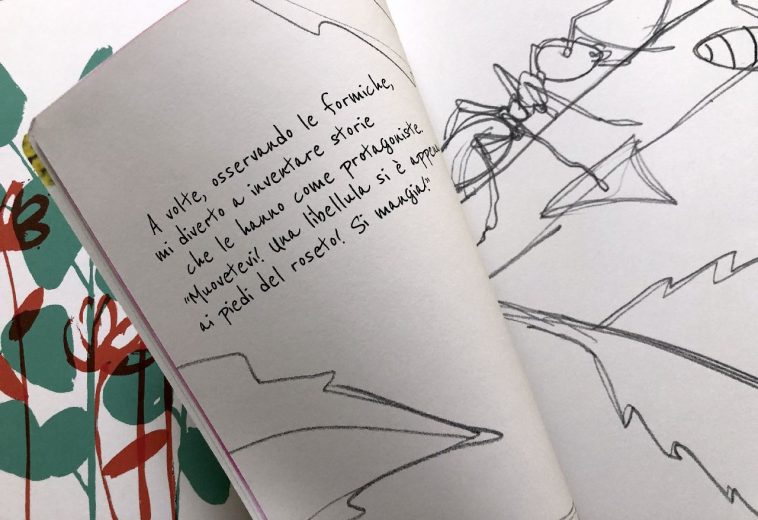 A volte, osservando le formiche,
mi diverto a inventare storie
che le hanno come protagoniste.
"Muovetevi! Una libellula si è appena
ai piedi del roseto! Si mangia!"